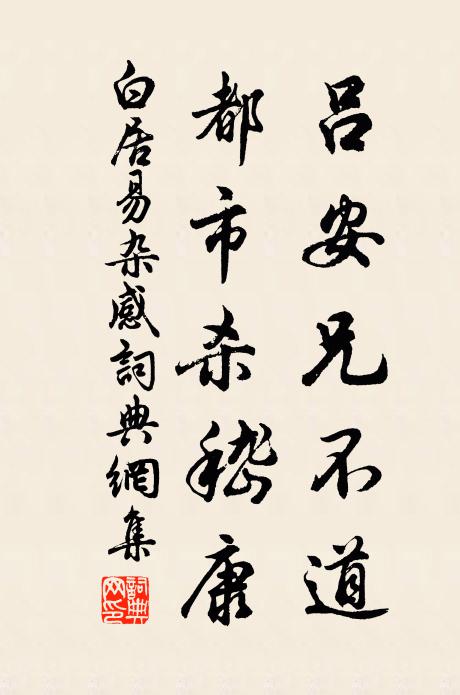 呂安兄不道
都市杀嵇康
白居易杂感詞典網集
詞典網印